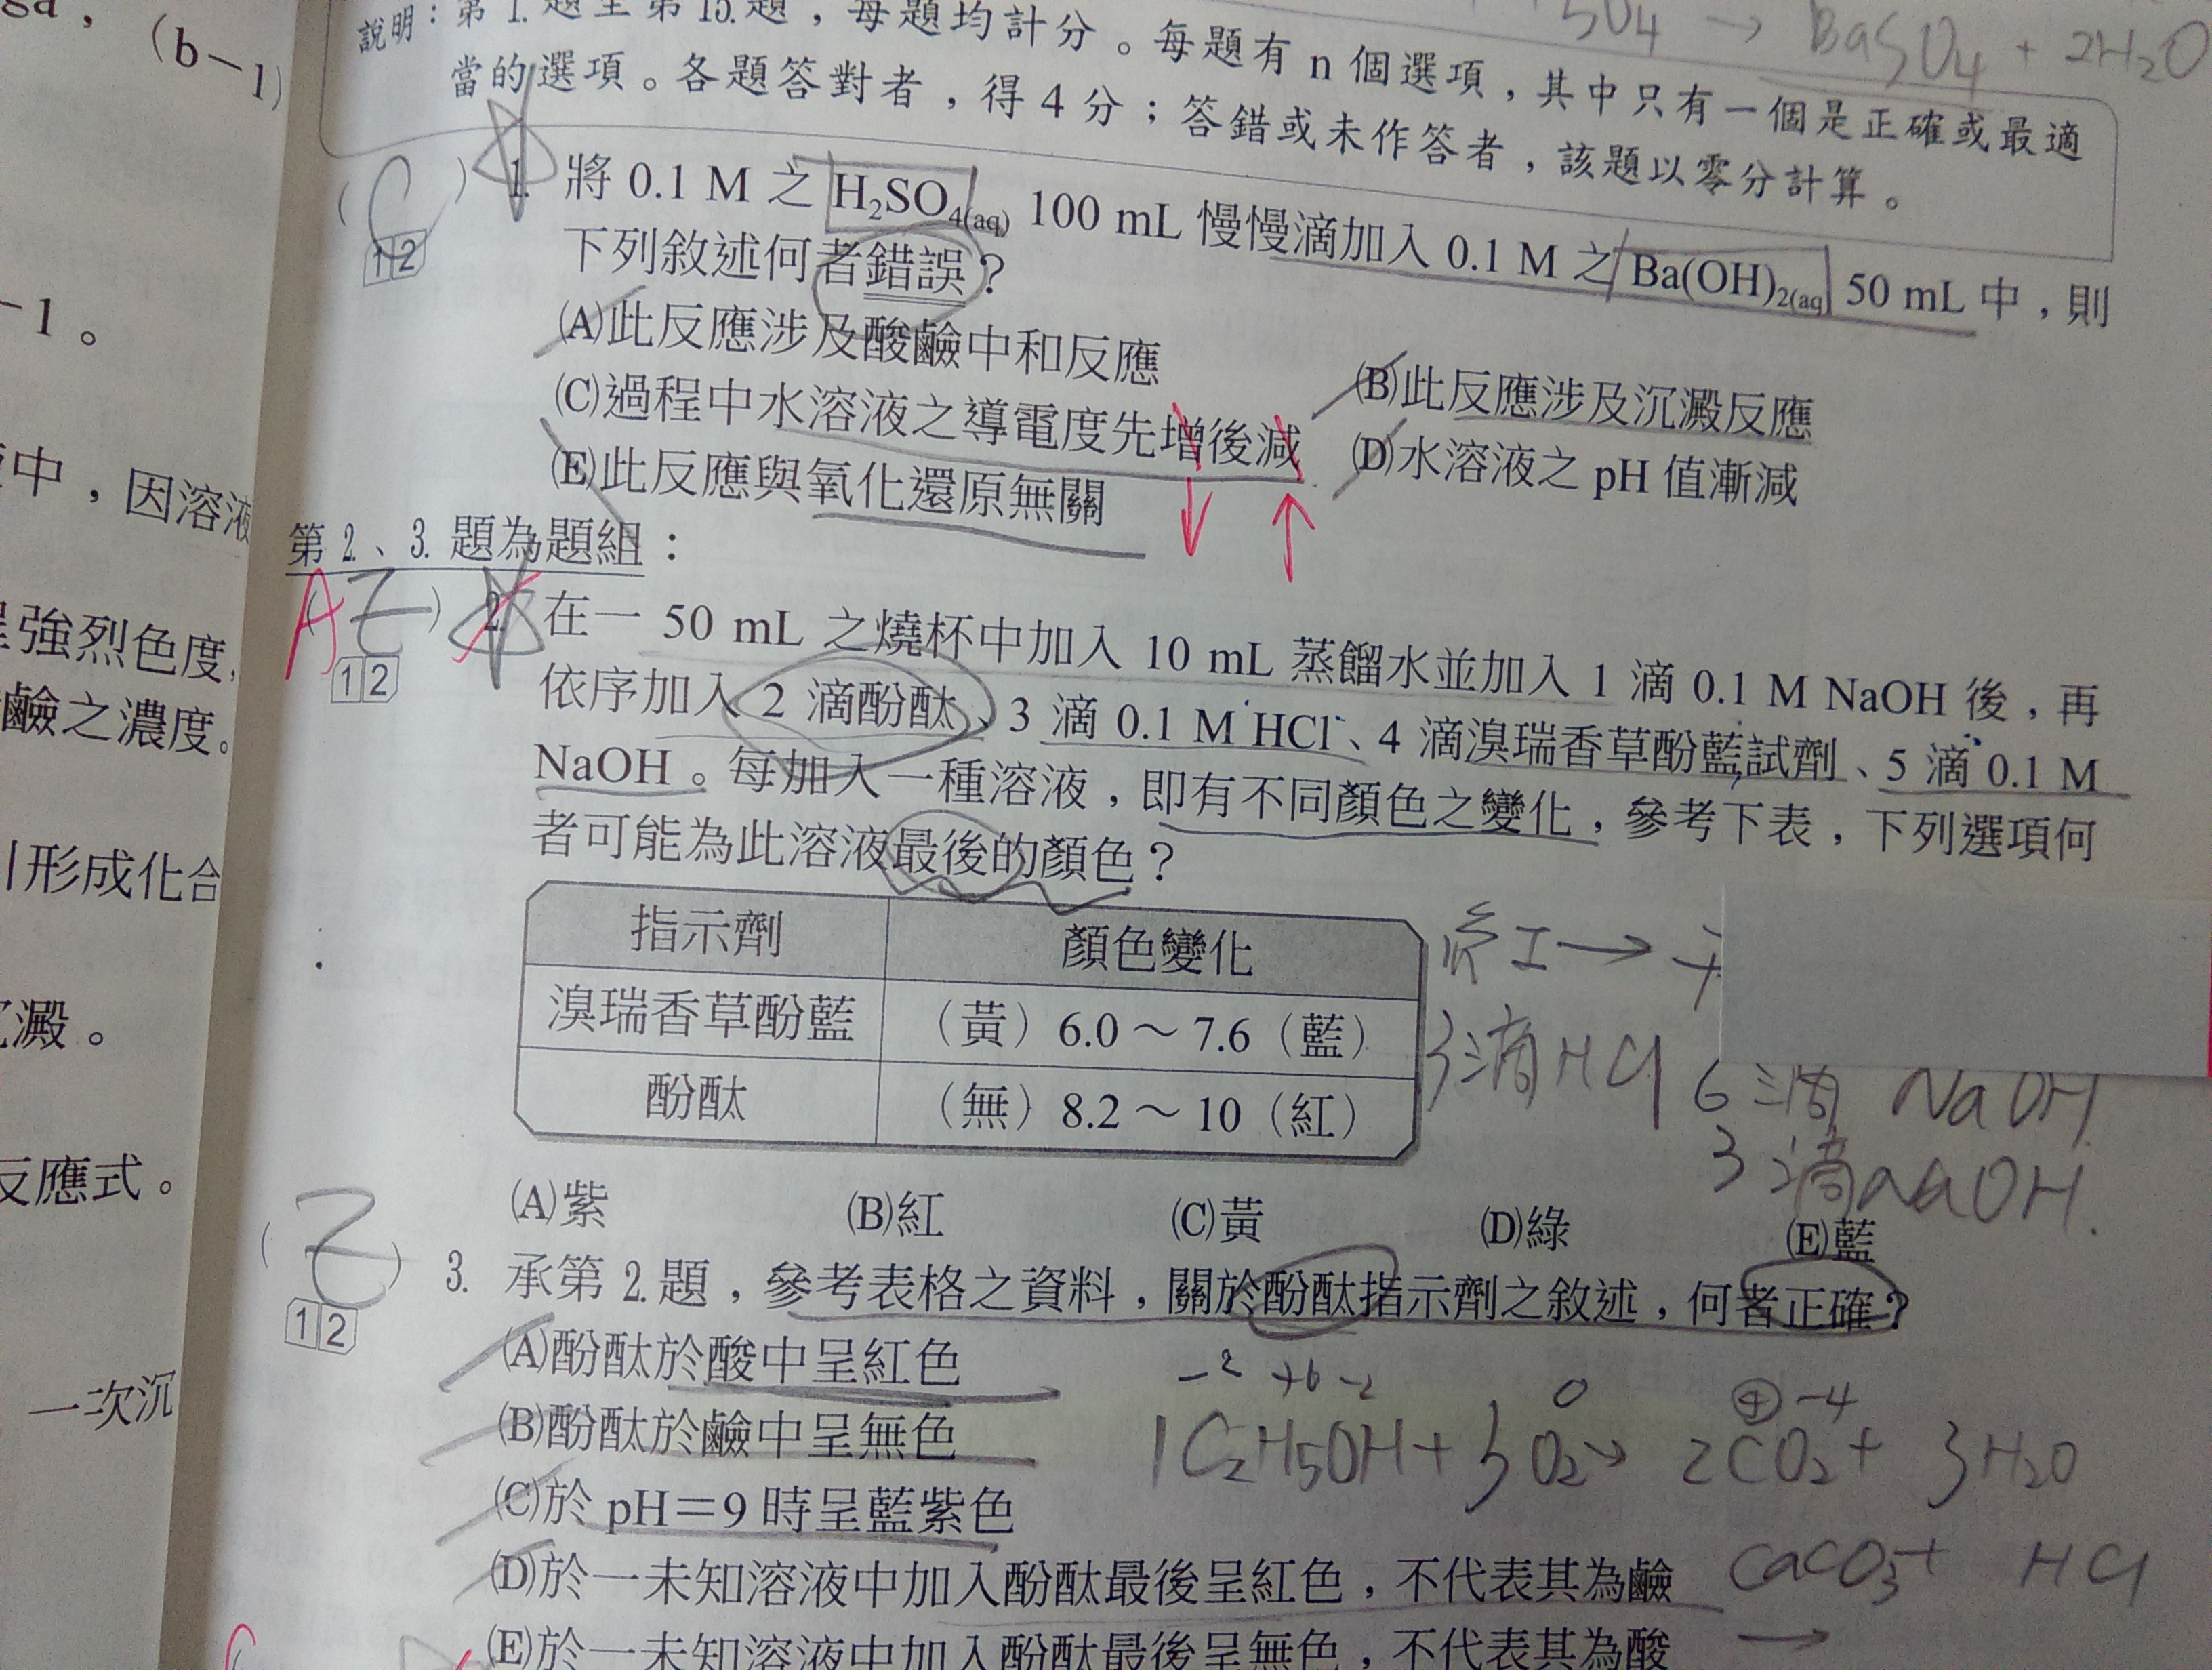 (b－1)
－1。
中，因溶液
強烈色度，
鹼之濃度。
形成化合
澱。
反應式。
一次沉
SO4 → BaSO4 + 2H2O
說明：第1.題至第15.題，每題均計分。每題有 n 個選項，其中只有一個是正確或最適
當的選項。各題答對者，得 4 分；答錯或未作答者，該題以零分計算。
( C ) 1. 將 0.1 M 之 H2SO4(aq) 100 mL 慢慢滴加入 0.1 M 之 Ba(OH)2(aq) 50 mL 中，則
12
下列敘述何者錯誤？
(A)此反應涉及酸鹼中和反應
(B)此反應涉及沉澱反應
(C)過程中水溶液之導電度先增後減
(D)水溶液之 pH 值漸減
(E)此反應與氧化還原無關
↓ ↑
第 2.、3. 題為題組：
A ( E ) 2. 在一 50 mL 之燒杯中加入 10 mL 蒸餾水並加入 1 滴 0.1 M NaOH 後，再
12
依序加入 2 滴酚酞、3 滴 0.1 M HCl、4 滴溴瑞香草酚藍試劑、5 滴 0.1 M
NaOH。每加入一種溶液，即有不同顏色之變化，參考下表，下列選項何
者可能為此溶液最後的顏色？
指示劑 顏色變化
溴瑞香草酚藍 （黃）6.0～7.6（藍）
酚酞 （無）8.2～10（紅）
紅→
3滴HCl
6滴 NaOH
3滴NaOH.
(A)紫 (B)紅 (C)黃 (D)綠 (E)藍
( E ) 3. 承第 2. 題，參考表格之資料，關於酚酞指示劑之敘述，何者正確？
12
(A)酚酞於酸中呈紅色
(B)酚酞於鹼中呈無色
(C)於 pH＝9 時呈藍紫色
(D)於一未知溶液中加入酚酞最後呈紅色，不代表其為鹼
(E)於一未知溶液中加入酚酞最後呈無色，不代表其為酸
－2 +6 －2 0 －4
1C2H5OH + 3O2 → 2CO2 + 3H2O
CaCO3 + HCl
→